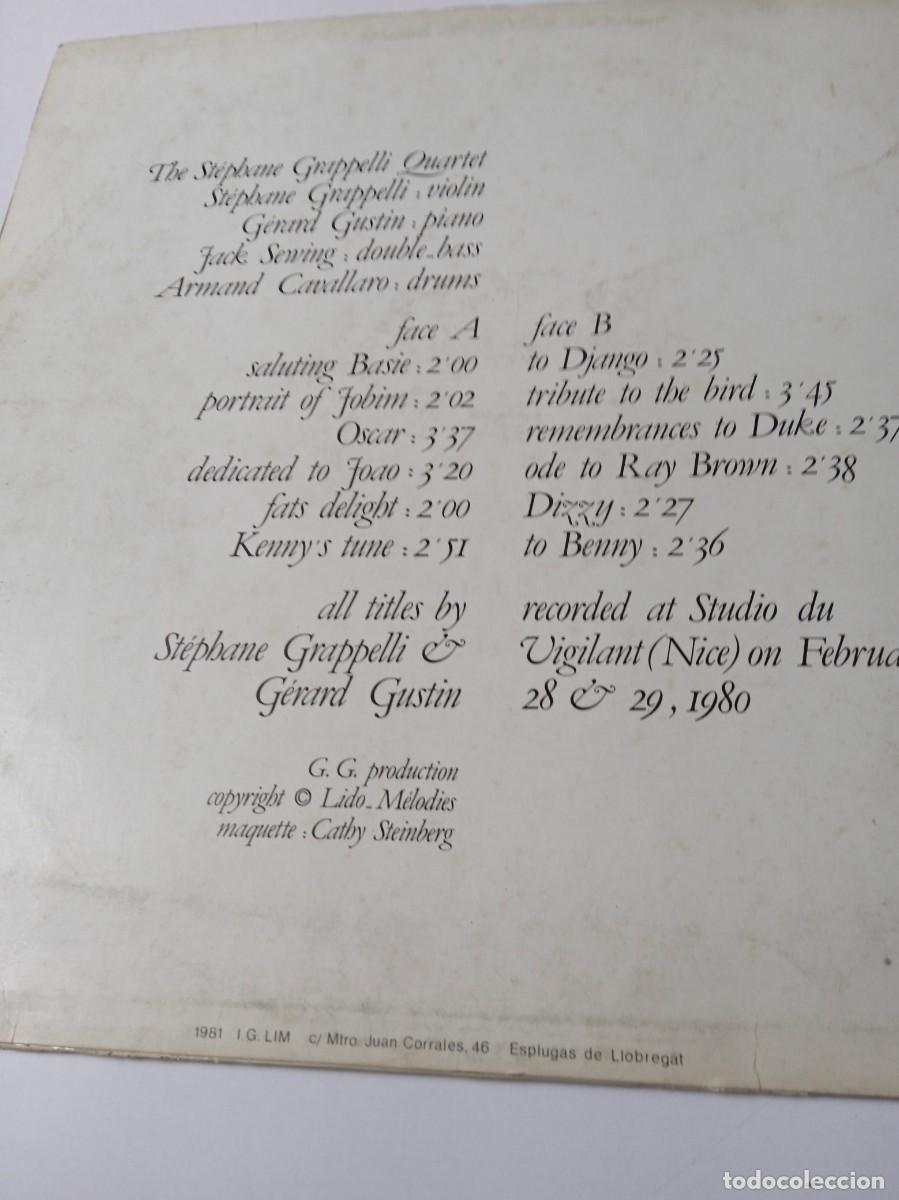 The Stéphane Grappelli Quartet
Stéphane Grappelli : violin
Gérard Gustin : piano
Jack Sewing : double-bass
Armand Cavallaro : drums
face A
saluting Basie : 2'00
portrait of Jobim : 2'02
Oscar : 3'37
dedicated to Joao : 3'20
fats delight : 2'00
Kenny's tune : 2'51
all titles by
Stéphane Grappelli &
Gérard Gustin
face B
to Django : 2'25
tribute to the bird : 3'45
remembrances to Duke : 2'37
ode to Ray Brown : 2'38
Dizzy : 2'27
to Benny : 2'36
recorded at Studio du
Vigilant (Nice) on Februa
28 & 29, 1980
G. G. production
copyright © Lido-Mélodies
maquette : Cathy Steinberg
1981 I.G. LIM c/ Mtro. Juan Corrales, 46 Esplugas de Llobregat
todocoleccion